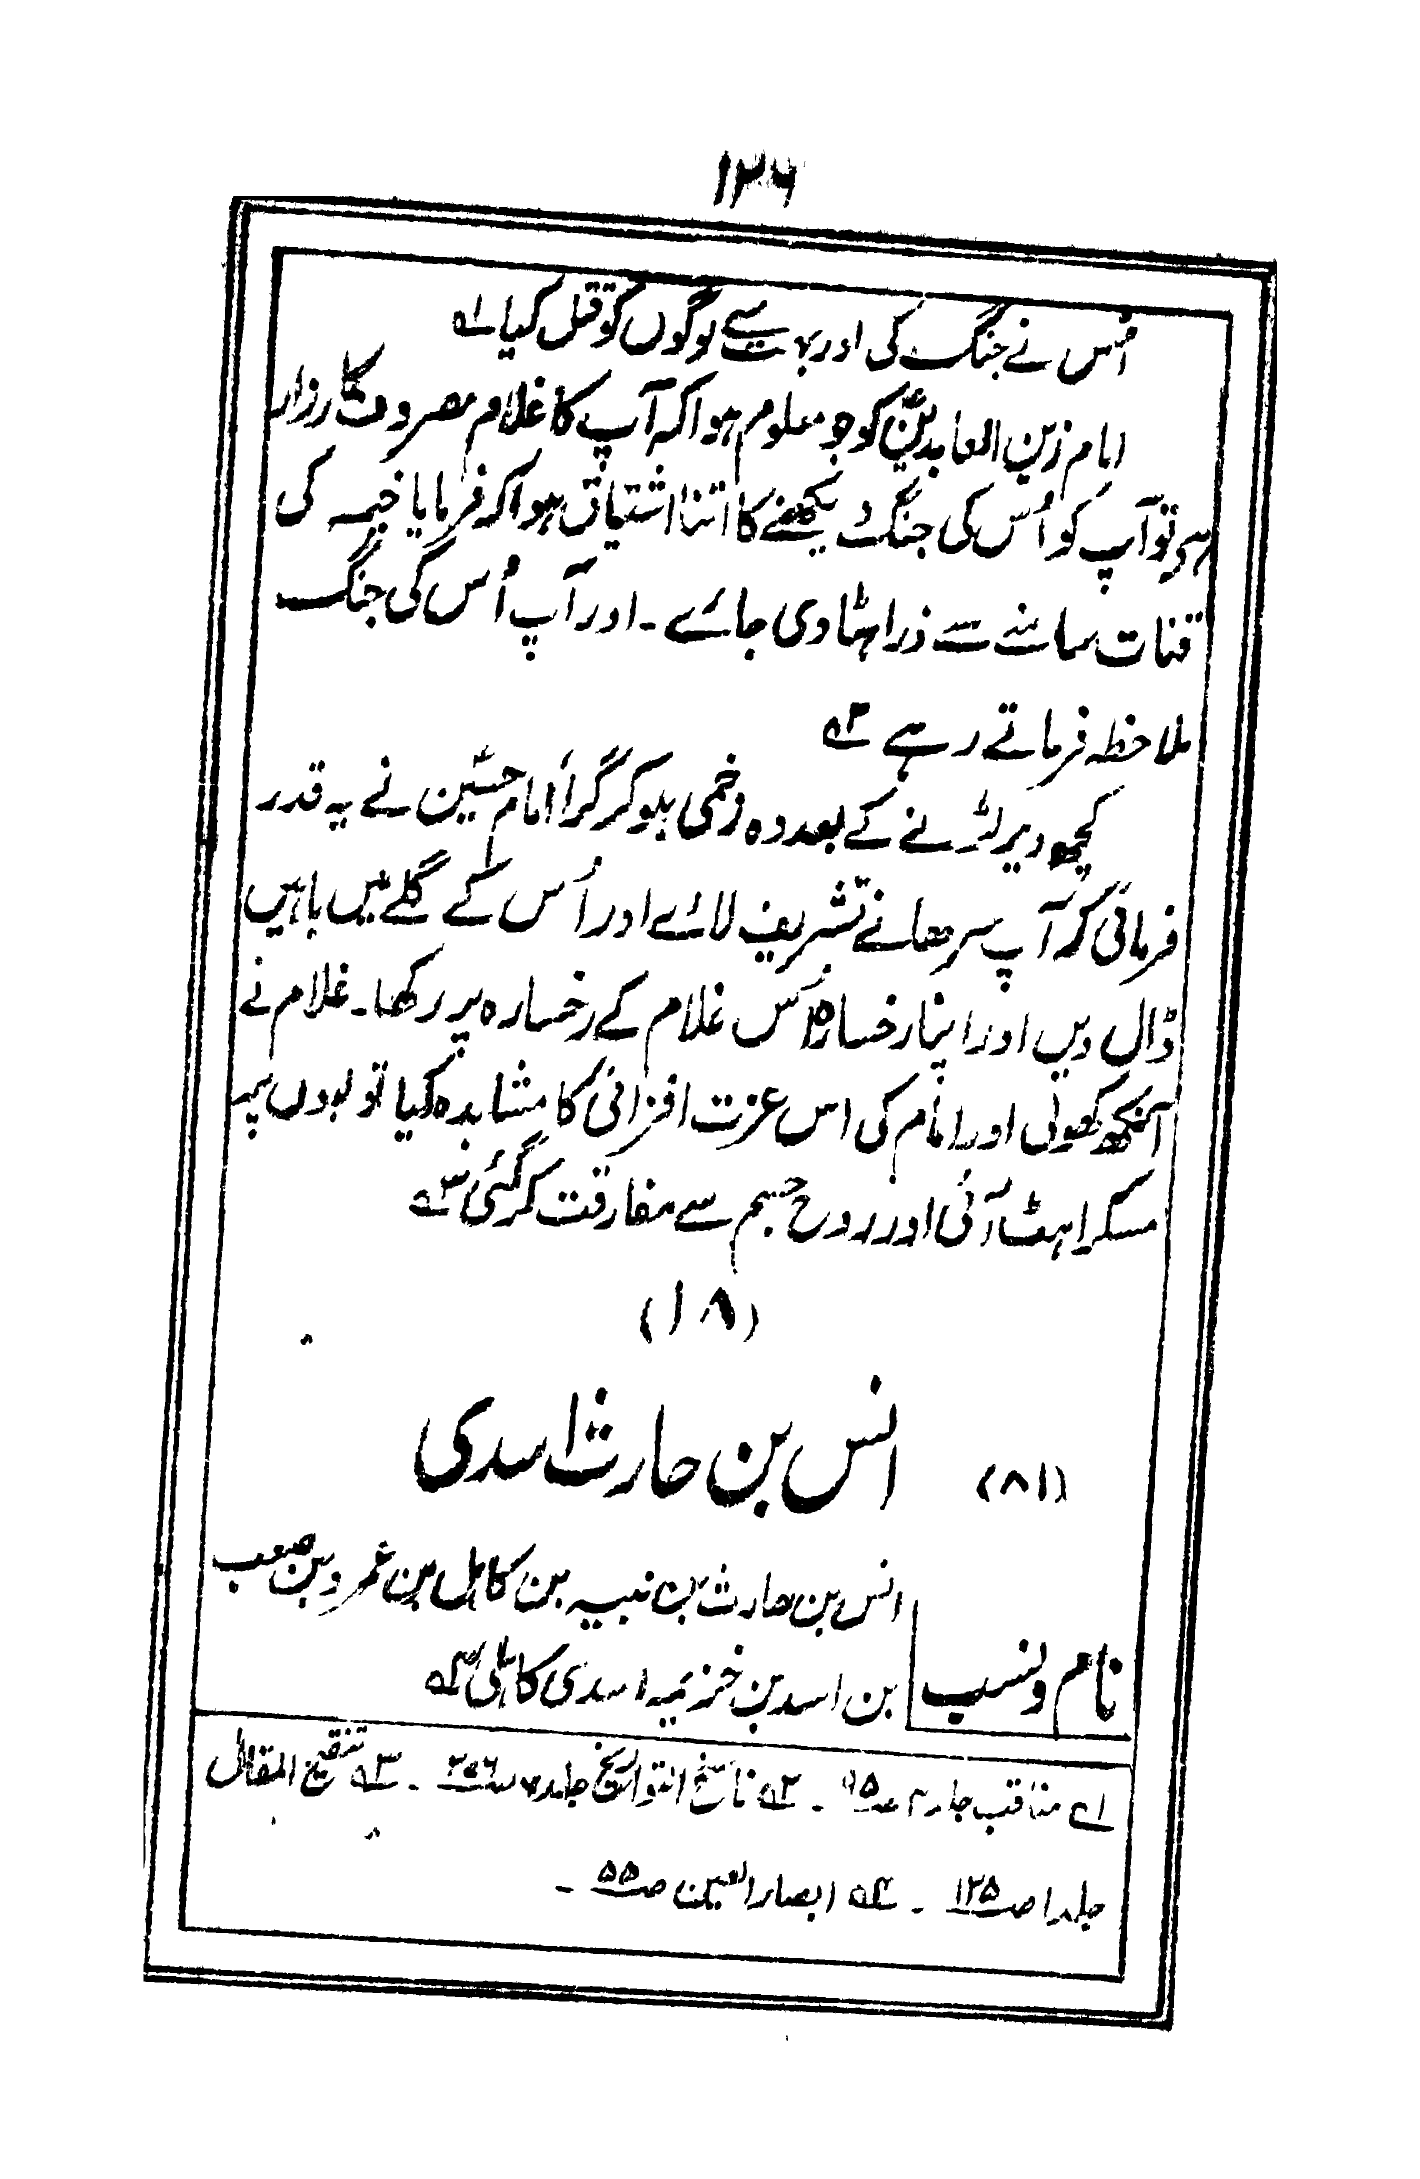 ۱۲۶
اُس نے جنگ کی اور بہت سے لوگوں کو قتل کیا ؎۱
امام زین العابدینؑ کو جو معلوم ہوا کہ آپ کا غلام مصروف کارزار
ہے تو آپ کو اُس کی جنگ دیکھنے کا اتنا اشتیاق ہوا کہ فرمایا خیمہ کی
قنات سامنے سے ذرا ہٹا دی جائے ۔ اور آپ اُس کی جنگ
ملاحظہ فرماتے رہے ؎۲
کچھ دیر لڑنے کے بعد وہ زخمی ہو کر گرا امام حسینؑ نے یہ قدر
فرمائی کہ آپ سرھانے تشریف لائے اور اُس کے گلے میں باہیں
ڈال دیں اور اپنا رخسارہ اُس غلام کے رخسارہ پر رکھا ۔ غلام نے
آنکھ کھولی اور امام کی اس عزت افزائی کا مشاہدہ کیا تو لبوں پر
مسکراہٹ آئی اور روح جسم سے مفارقت کر گئی ؎۳
(۱۸)
(۸۱) انس بن حارث اسدی
نام و نسب انس بن حارث بن نبیہ بن کاہل بن عمرو بن صعب
بن اسد بن خزیمہ اسدی کاہلی ؎۴
؎۱ مناقب جلد ۴ صـ۹۵ ۔ ؎۲ ناسخ التواریخ جلد ۶ صـ۲۵۶ ۔ ؎۳ تنقیح المقال
جلد ۱ صـ۱۲۵ ۔ ؎۴ ابصار العین صـ۵۵ ۔